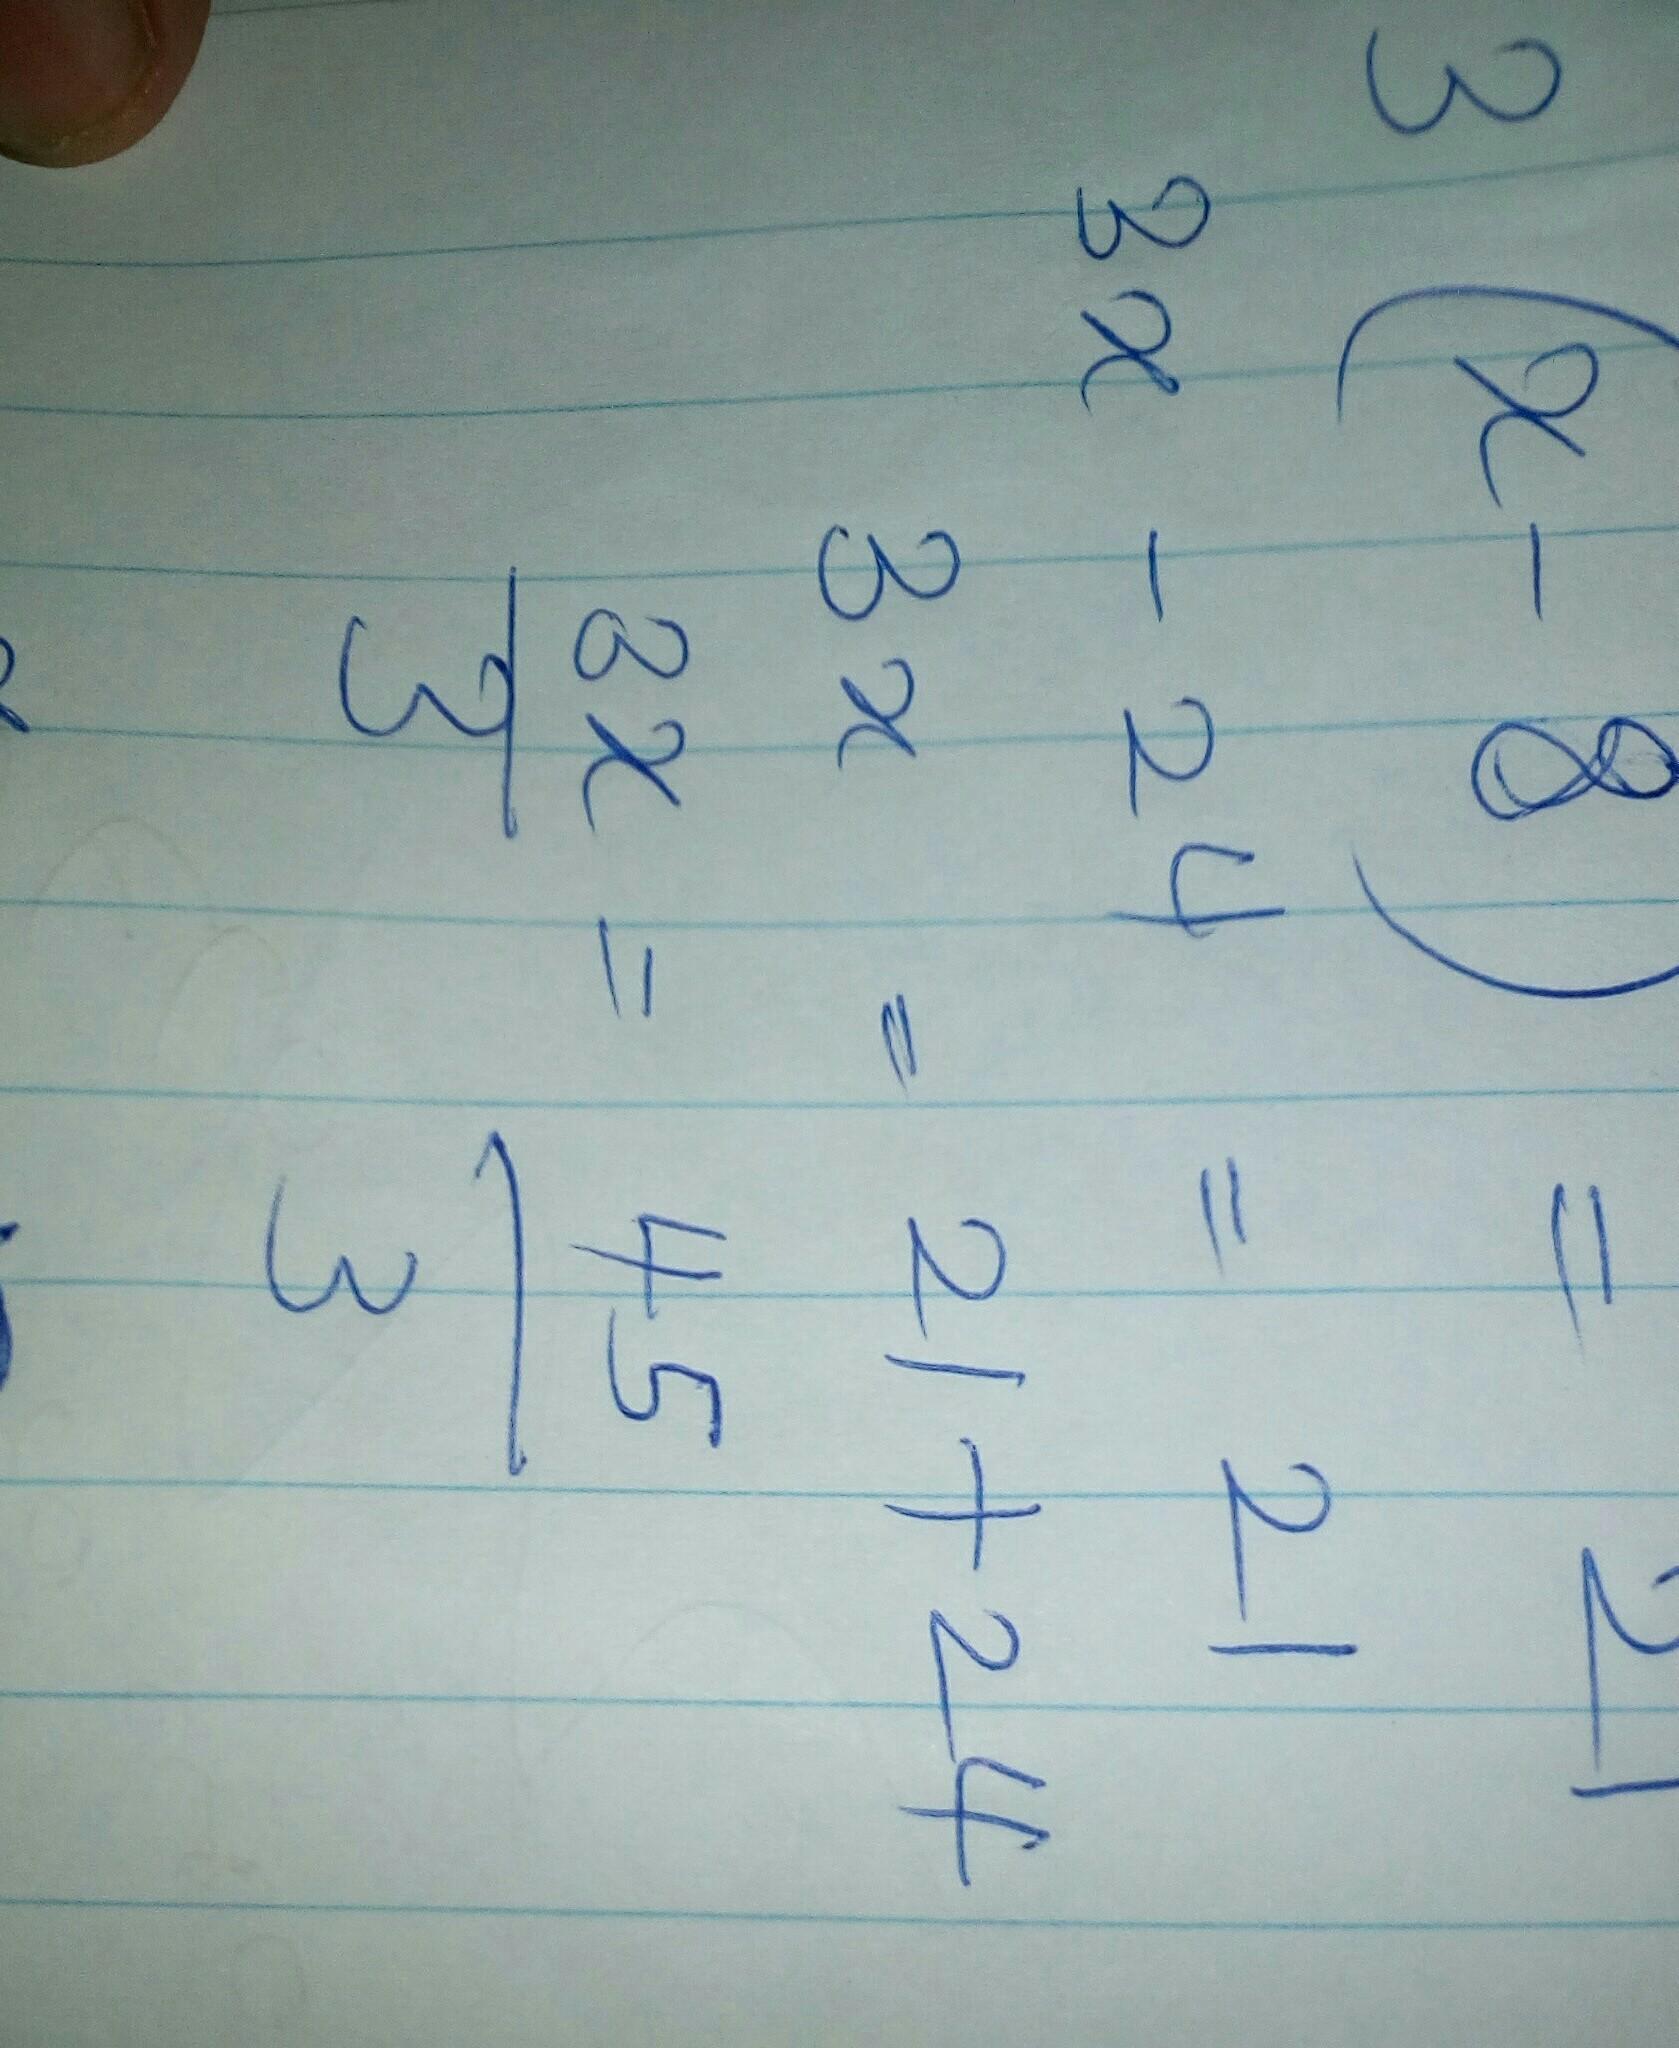 3 (x - 8) = 21
3x - 24 = 21
3x = 21 + 24
3x = 45
3 3